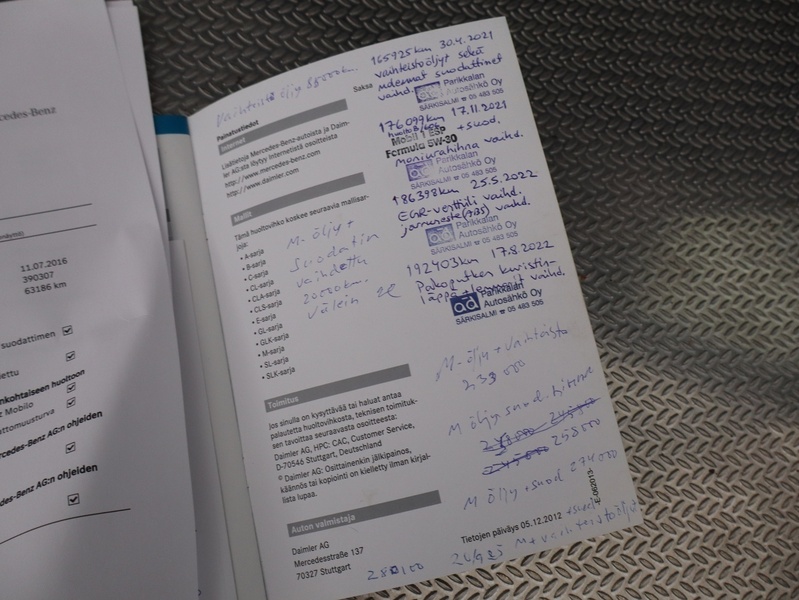 cedes-Benz
11.07.2016
390307
63186 km
suodattimen
ettu
nkohtaiseen huoltoon
z Mobilo
ttomuusturva
rcedes-Benz AG:n ohjeiden
rcedes-Benz AG:n ohjeiden
öljy 85000km.
Painatustiedot
Internet
Lisätietoja Mercedes-Benz-autoista ja Daim-
ler AG:sta löytyy Internetistä osoitteista
http://www.mercedes-benz.com
http://www.daimler.com
Mallit
Tämä huoltovihko koskee seuraavia mallisar-
joja:
• A-sarja
• B-sarja
• C-sarja
• CL-sarja
• CLA-sarja
• CLS-sarja
• E-sarja
• GL-sarja
• GLK-sarja
• M-sarja
• SL-sarja
• SLK-sarja
M-öljy +
Suodatin
vaihdettu
20000km.
välein
Toimitus
Jos sinulla on kysyttävää tai haluat antaa
palautetta huoltovihosta, teknisen toimituk-
sen tavoittaa seuraavasta osoitteesta:
Daimler AG, HPC: CAC, Customer Service,
D-70546 Stuttgart, Deutschland
© Daimler AG: Osittainenkin jälkipainos,
käännös tai kopiointi on kielletty ilman kirjal-
lista lupaa.
Auton valmistaja
Daimler AG
Mercedesstraße 137
70327 Stuttgart
Saksa
165925km 30.4.2021
vaihteistoöljyt sekä
suodattimet
vaihd.
ad Parikkalan
Autosähkö Oy
SÄRKISALMI ☎ 05 483 505
176099km 17.11.2021
+suod.
Mobil 1 ESP
Formula 5W-30
moniurahihna vaihd.
ad Parikkalan
Autosähkö Oy
SÄRKISALMI ☎ 05 483 505
186398km 25.5.2022
EGR-venttiili vaihd.
jarruneste vaihd.
ad Parikkalan
Autosähkö Oy
SÄRKISALMI ☎ 05 483 505
192403km 17.8.2022
Pakoputken kuristin-
läppä vaihd.
ad Parikkalan
Autosähkö Oy
SÄRKISALMI ☎ 05 483 505
M-öljy + vaihteisto
233 000
M öljy suod.
258000
M öljy + suod 274000
Tietojen päiväys 05.12.2012
M + vaihteistoöljyt